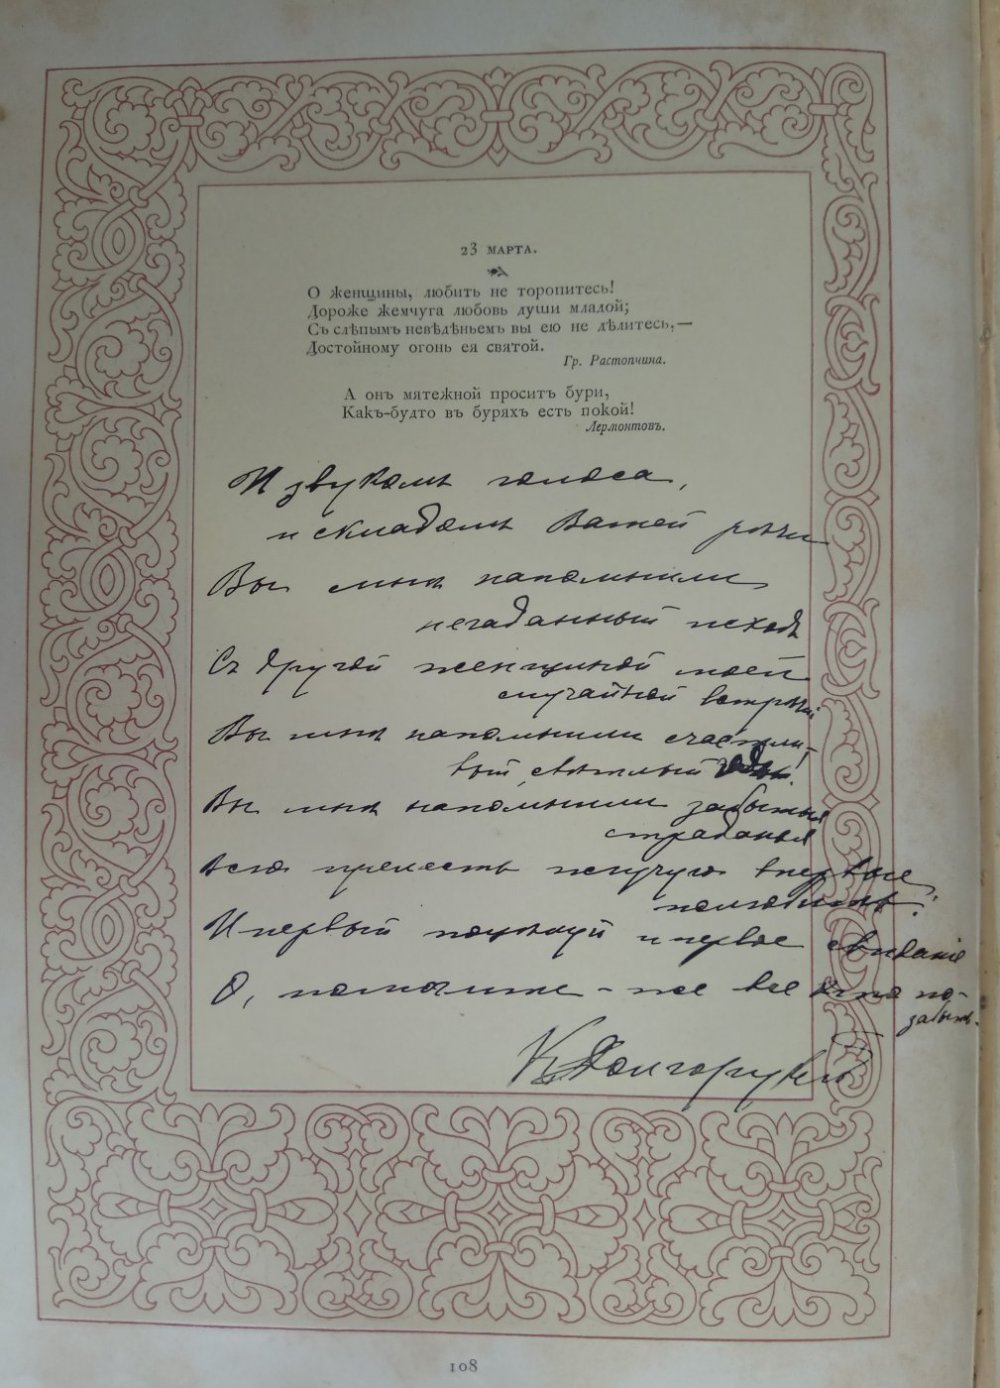 23 МАРТА.
О женщины, любить не торопитесь!
Дороже жемчуга любовь души младой;
Съ слѣпымъ невѣдѣньемъ вы ею не дѣлитесь,—
Достойному огонь ея святой.
Гр. Растопчина.
А онъ мятежной проситъ бури,
Какъ-будто въ буряхъ есть покой!
Лермонтовъ.
И звукомъ голоса,
и складомъ Вашей рѣчи
Вы мнѣ напомнили
негаданный исходъ
Съ другой женщиной моей
случайной встрѣчи
Вы мнѣ напомнили счастли-
вый, свѣтлый
Вы мнѣ напомнили забытыя
страданья
Всю прелесть жгучую впервые
полюбить
И первый поцѣлуй и первое свиданіе
О, помогите-же все это по-
забыть.
К Долгорукій
108